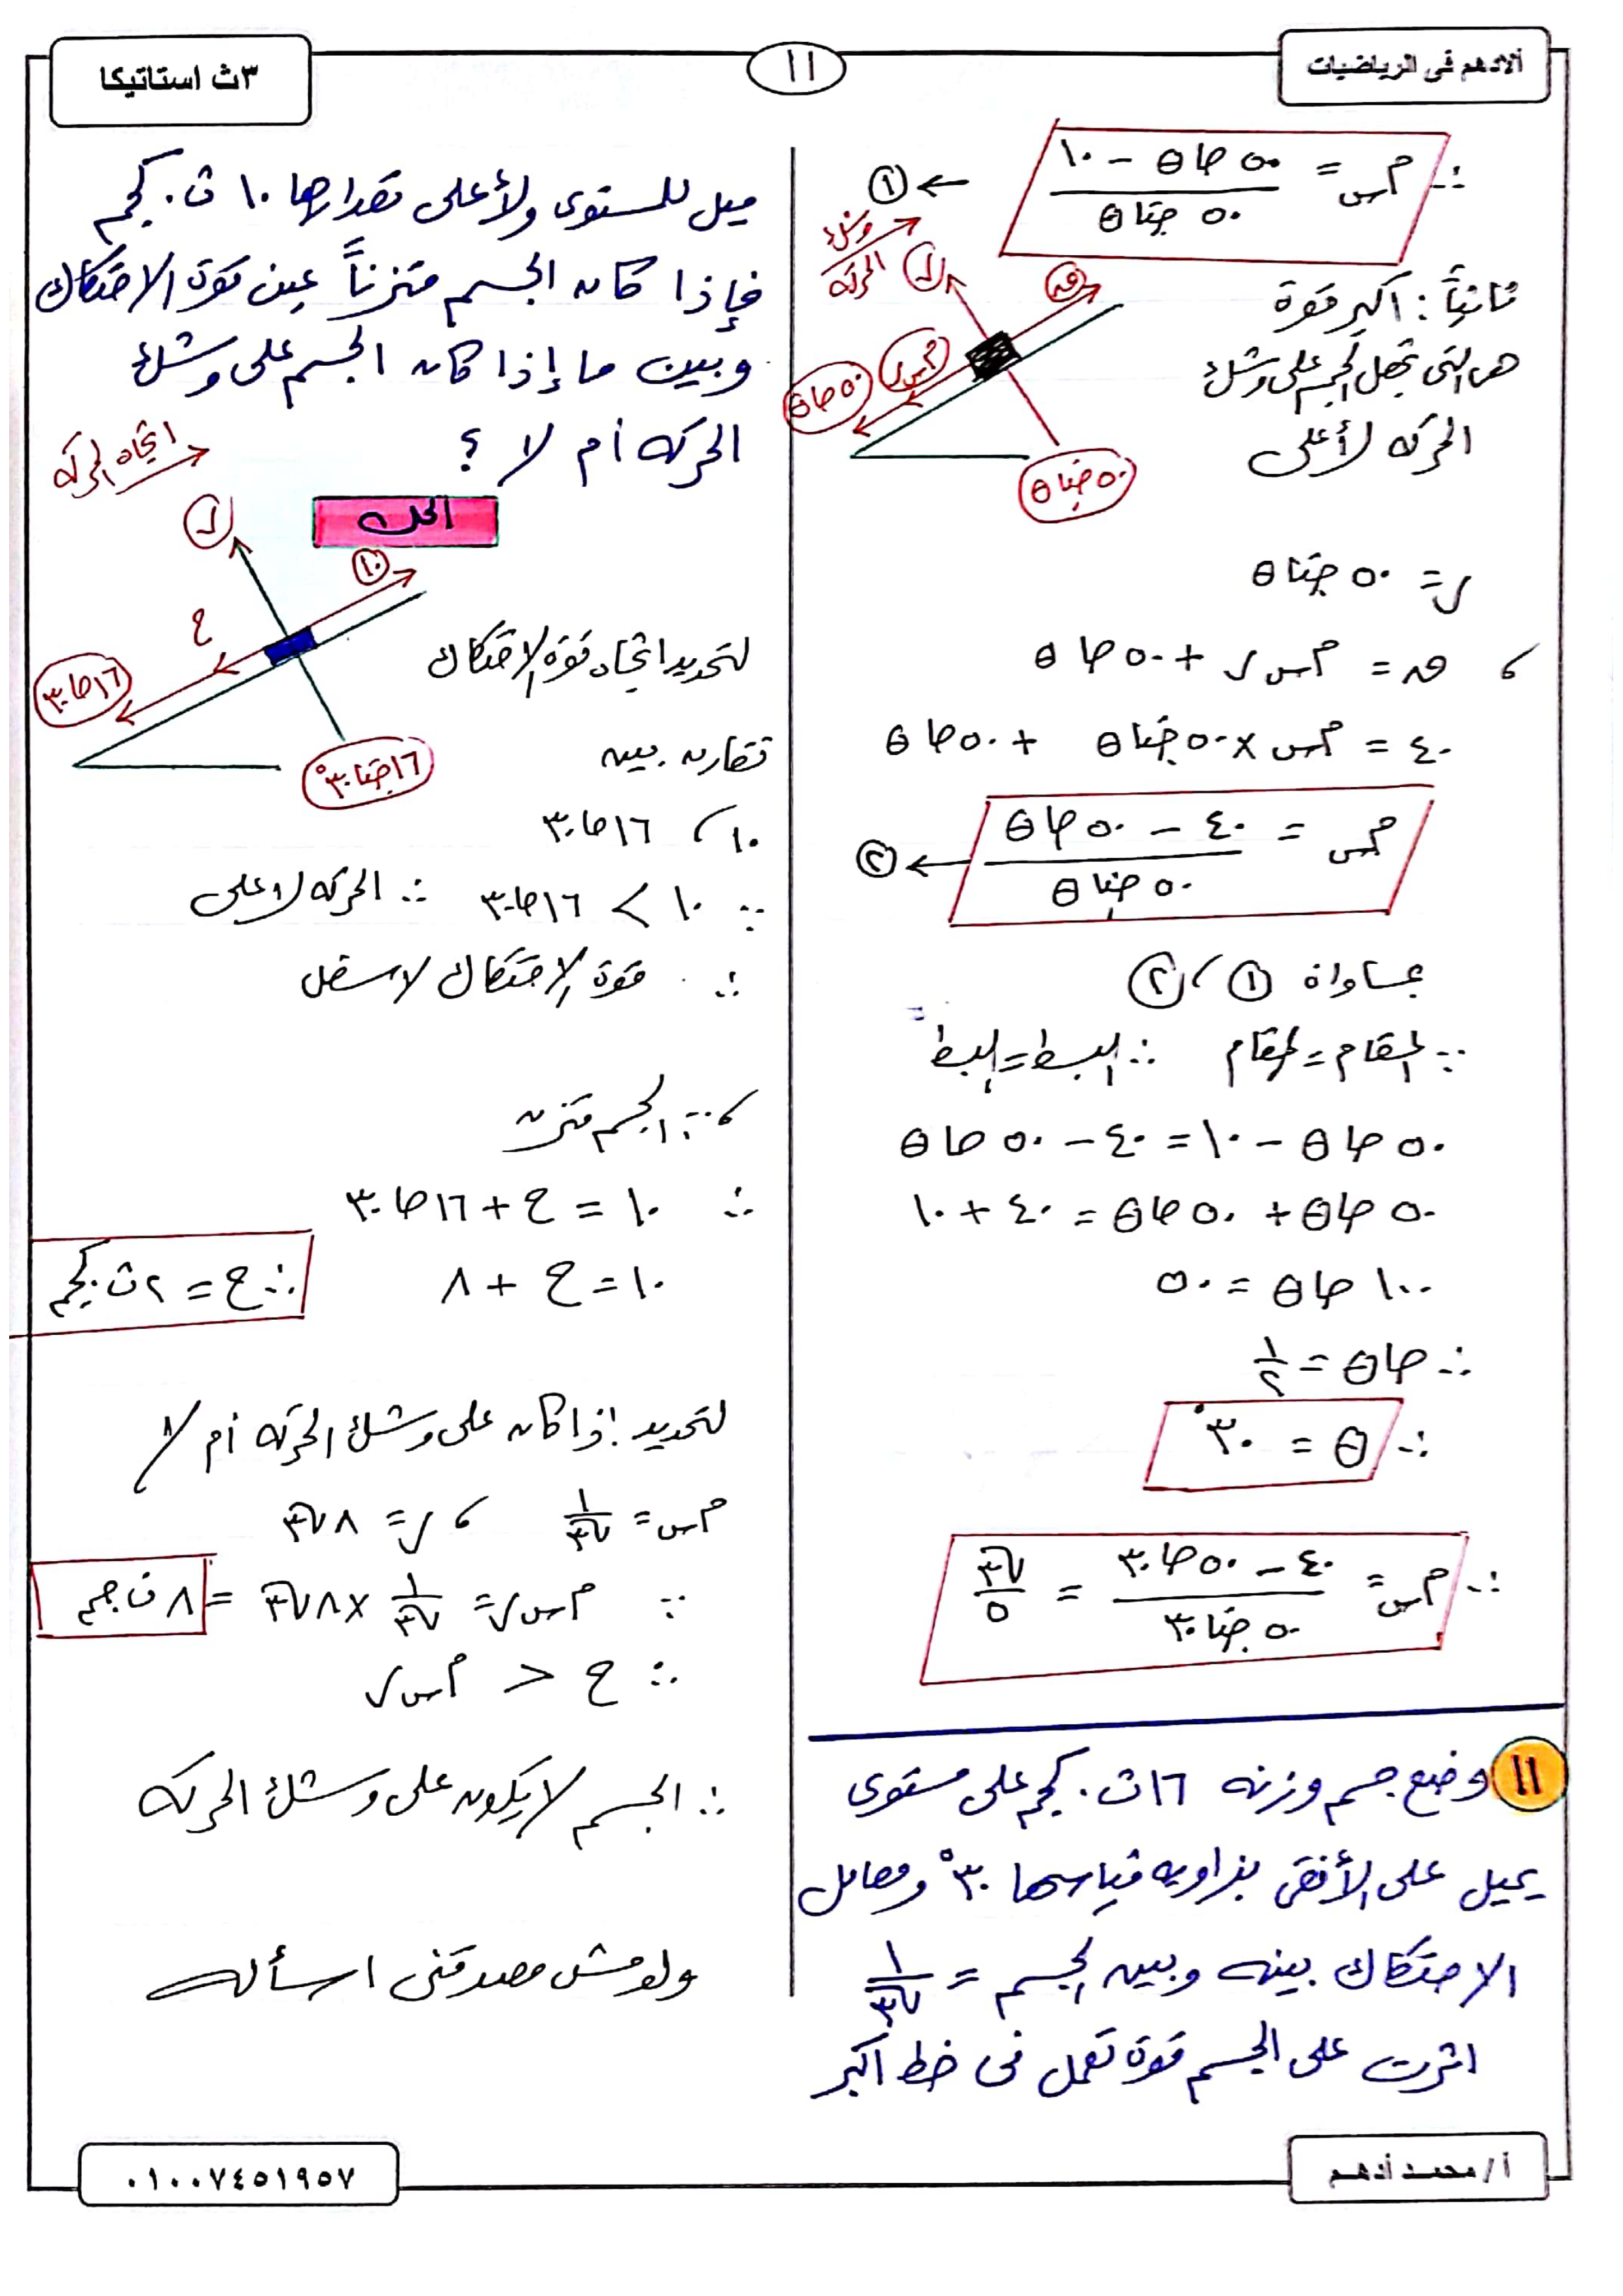 ألادهم فى الرياضيات
١١
٣ث استاتيكا
∴ م س = (٥٠ جا θ − ١٠) / (٥٠ جتا θ) ← ①
ثانياً : أكبر قوة
هى التى تجعل الجسم على وشك
الحركه لأعلى
وشك الحركه
ر
ق
م س ر
٥٠ جا θ
٥٠ جتا θ
ر = ٥٠ جتا θ
، ق = م س ر + ٥٠ جا θ
٤٠ = م س × ٥٠ جتا θ + ٥٠ جا θ
م س = (٤٠ − ٥٠ جا θ) / (٥٠ جتا θ) ← ②
بمساواة ① ، ②
∵ المقام = المقام ∴ البسط = البسط
٥٠ جا θ − ١٠ = ٤٠ − ٥٠ جا θ
٥٠ جا θ + ٥٠ جا θ = ٤٠ + ١٠
١٠٠ جا θ = ٥٠
∴ جا θ = ١/٢
∴ θ = ٣٠°
∴ م س = (٤٠ − ٥٠ جا ٣٠) / (٥٠ جتا ٣٠) = √٣/٥
١١ وضع جسم وزنه ١٦ ث . كجم على مستوى
يميل على الأفقى بزاويه قياسها ٣٠° ومعامل
الاحتكاك بينه وبين الجسم = ١/√٣
اثرت على الجسم قوة تعمل فى خط اكبر
ميل للمستوى ولأعلى مقدارها ١٠ ث . كجم
فإذا كان الجسم متزناً عين قوة الاحتكاك
وبين ما إذا كان الجسم على وشك
الحركه أم لا ؟
الحل
اتجاه الحركه
ر
١٠
ح
١٦ جا ٣٠
١٦ جتا ٣٠°
لتحديد اتجاه قوة الاحتكاك
نقارن بين
١٠ ، ١٦ جا ٣٠
∵ ١٠ > ١٦ جا ٣٠ ∴ الحركه لاعلى
∴ قوة الاحتكاك لاسفل
، ∵ الجسم متزن
∴ ١٠ = ح + ١٦ جا ٣٠
١٠ = ح + ٨
∴ ح = ٢ ث . كجم
لتحديد إذا كان على وشك الحركه أم لا
م س = ١/√٣ ، ر = ٨√٣
∵ م س ر = ١/√٣ × ٨√٣ = ٨ ث جم
∴ ح < م س ر
∴ الجسم لا يكون على وشك الحركه
ولو مش مصدقنى اسأله
أ / محمـد أدهـم
٠١٠٠٧٤٥١٩٥٧